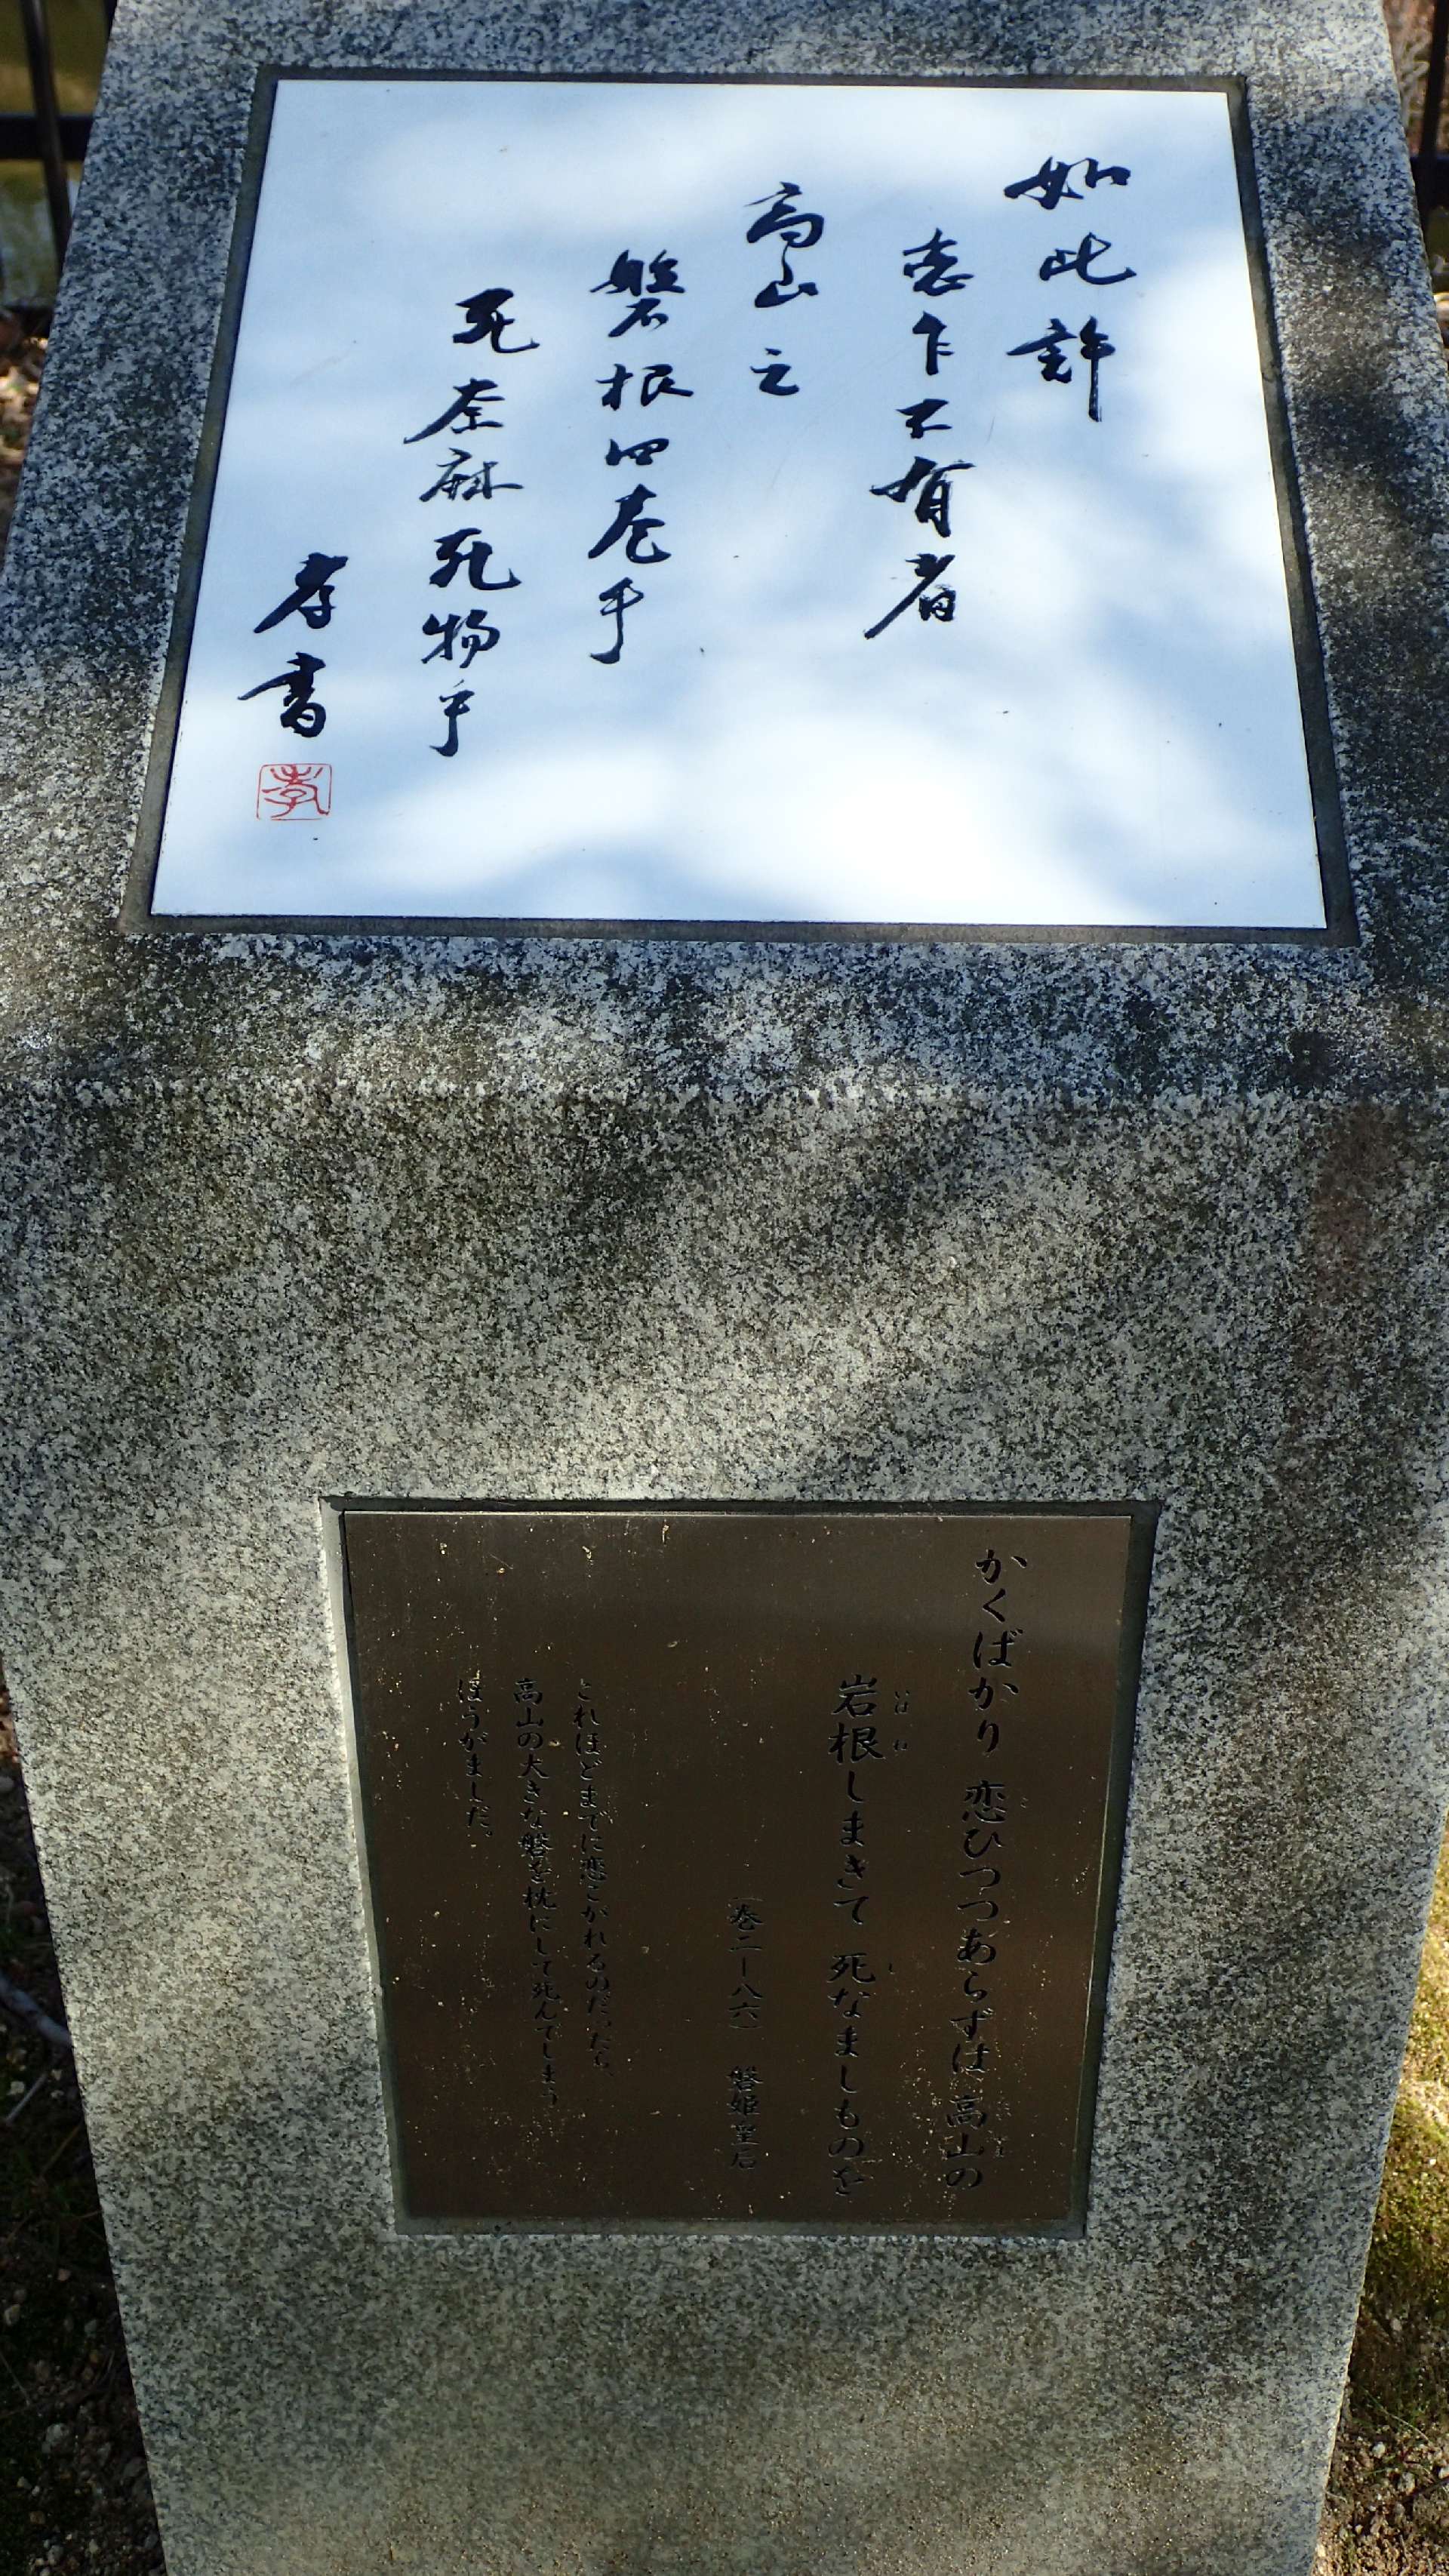 如此許
恋乍不有者
高山之
磐根四巻手
死奈麻死物乎
孝書
孝
かくばかり 恋ひつつあらずは 高山の
岩根しまきて 死なましものを
(巻二ー八六) 磐姫皇后
これほどまでに恋こがれるのだったら、
高山の大きな磐を枕にして死んでしまう
ほうがましだ。